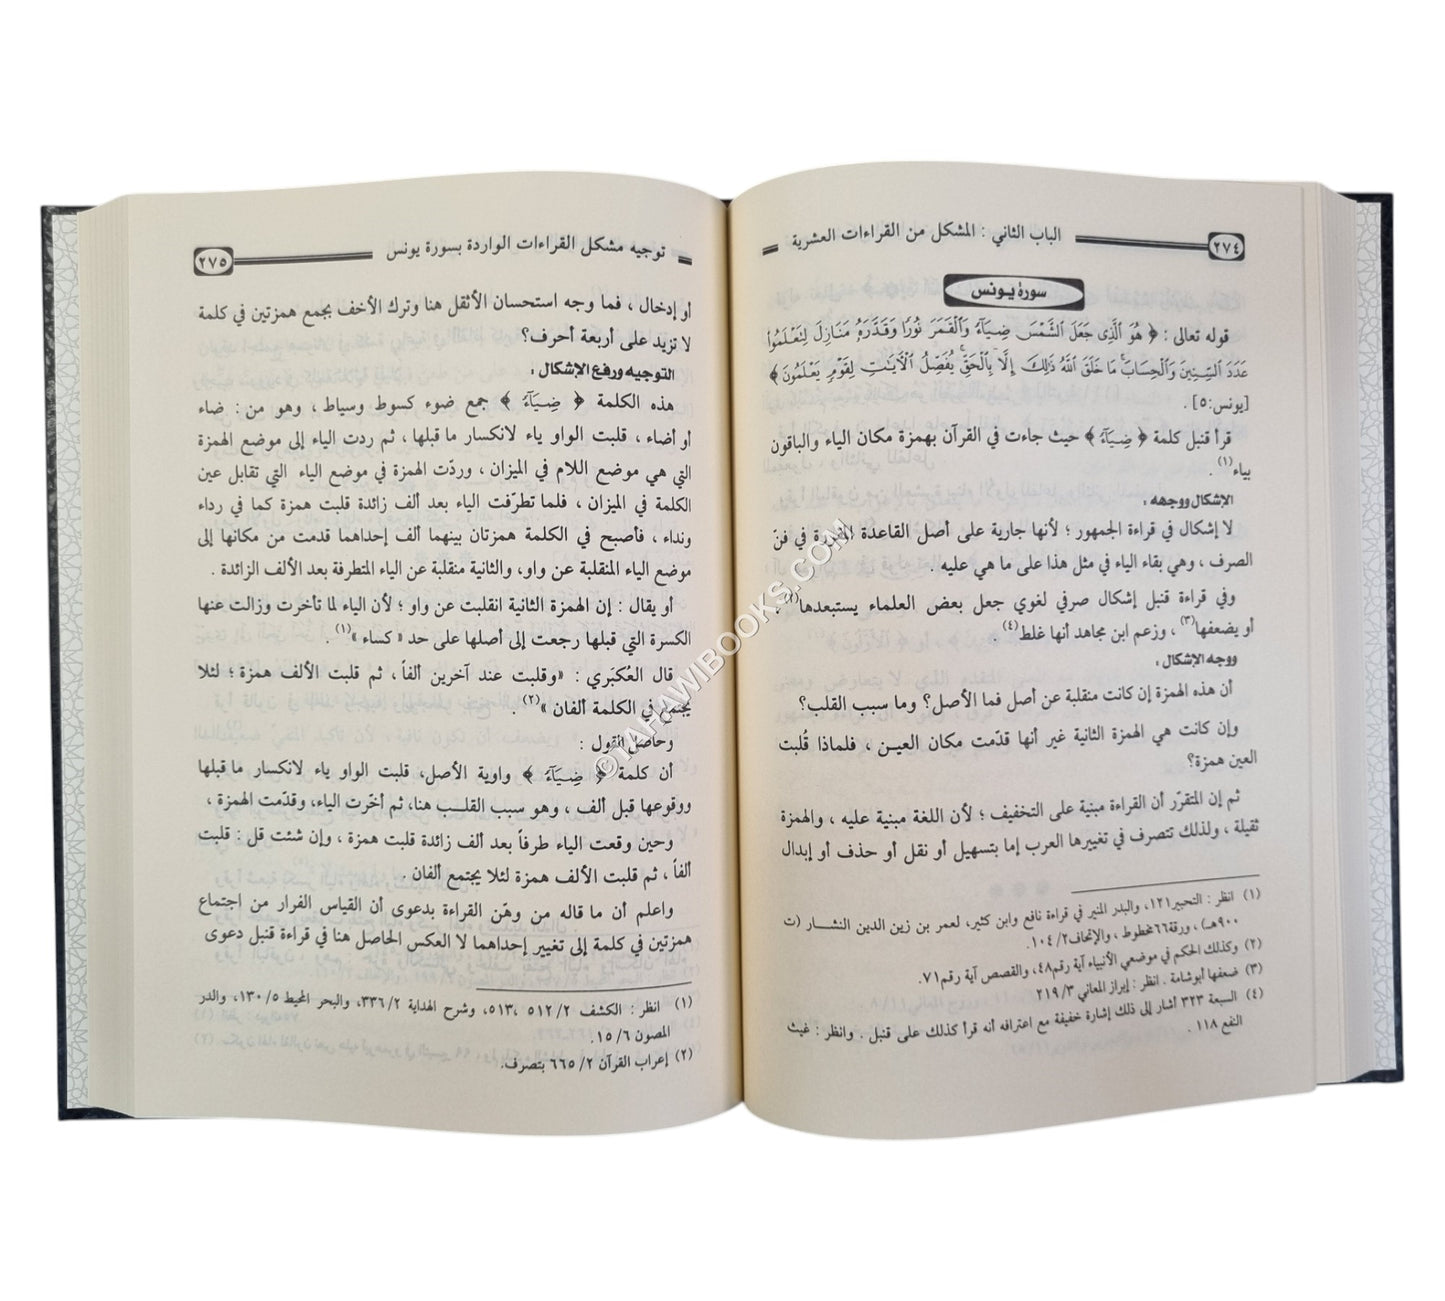 ٢٧٤
الباب الثاني : المشكل من القراءات العشرية
سورة يونس
قوله تعالى : ﴿ هُوَ ٱلَّذِى جَعَلَ ٱلشَّمْسَ ضِيَآءً وَٱلْقَمَرَ نُورًا وَقَدَّرَهُۥ مَنَازِلَ لِتَعْلَمُوا۟
عَدَدَ ٱلسِّنِينَ وَٱلْحِسَابَ ۚ مَا خَلَقَ ٱللَّهُ ذَٰلِكَ إِلَّا بِٱلْحَقِّ ۚ يُفَصِّلُ ٱلْءَايَٰتِ لِقَوْمٍ يَعْلَمُونَ ﴾
[يونس:٥] .
قرأ قنبل كلمة ﴿ ضِيَآءً ﴾ حيث جاءت في القرآن بهمزة مكان الياء والباقون
بياء(١) .
الإشكال ووجهه :
لا إشكال في قراءة الجمهور ؛ لأنها جارية على أصل القاعدة المقررة في فنّ
الصرف ، وهي بقاء الياء في مثل هذا على ما هي عليه .
وفي قراءة قنبل إشكال صرفي لغوي جعل بعض العلماء يستبعدها(٢) .
أو يضعفها(٣) ، وزعم ابن مجاهد أنها غلط(٤) .
ووجه الإشكال :
أن هذه الهمزة إن كانت منقلبة عن أصل فما الأصل؟ وما سبب القلب؟
وإن كانت هي الهمزة الثانية غير أنها قدّمت مكان العيـن ، فلماذا قُلبت
العين همزة؟
ثم إن المتقرّر أن القراءة مبنية على التخفيف ؛ لأن اللغة مبنية عليه ، والهمزة
ثقيلة ، ولذلك تتصرف في تغييرها العرب إما بتسهيل أو نقل أو حذف أو إبدال
(١) انظر : التحبير١٢١، والبدر المنير في قراءة نافع وابن كثير، لعمر بن زين الدين النشـــار (ت
٩٠٠هـ) ، ورقة٦٦مخطوط ، والإتحاف٢/ ١٠٤ .
(٢) وكذلك الحكم في موضعي الأنبياء آية رقم٤٨، والقصص آية رقم٧١.
(٣) ضعفها أبوشامة . انظر : إبراز المعاني ٣/ ٢١٩
(٤) السبعة ٣٢٣ أشار إلى ذلك إشارة خفيفة مع اعترافه أنه قرأ كذلك على قنبل . وانظر : غيث
النفع ١١٨ .
توجيه مشكل القراءات الواردة بسورة يونس
٢٧٥
أو إدخال ، فما وجه استحسان الأثقل هنا وترك الأخف بجمع همزتين في كلمة
لا تزيد على أربعة أحرف؟
التوجيه ورفع الإشكال :
هذه الكلمة ﴿ ضِيَآءً ﴾ جمع ضوء كسوط وسياط ، وهو من : ضاء
أو أضاء ، قلبت الواو ياء لانكسار ما قبلها ، ثم ردت الياء إلى موضع الهمزة
التي هي موضع اللام في الميزان ، وردّت الهمزة في موضع الياء التي تقابل عين
الكلمة في الميزان ، فلما تطرّفت الياء بعد ألف زائدة قلبت همزة كما في رداء
ونداء ، فأصبح في الكلمة همزتان بينهما ألف إحداهما قدمت من مكانها إلى
موضع الياء المنقلبة عن واو، والثانية منقلبة عن الياء المتطرفة بعد الألف الزائدة .
أو يقال : إن الهمزة الثانية انقلبت عن واو ؛ لأن الياء لما تأخرت وزالت عنها
الكسرة التي قبلها رجعت إلى أصلها على حد « كساء »(١) .
قال العُكبَري : «وقلبت عند آخرين ألفاً ، ثم قلبت الألف همزة ؛ لئلا
يجتمع في الكلمة ألفان »(٢) .
وحاصل القول :
أن كلمة ﴿ ضِيَآءً ﴾ واوية الأصل، قلبت الواو ياء لانكسار ما قبلها
ووقوعها قبل ألف ، وهو سبب القلـب هنا، ثم أخّرت الياء، وقدّمت الهمزة ،
وحين وقعت الياء طرفاً بعد ألف زائدة قلبت همزة ، وإن شئت قل : قلبت
ألفاً ، ثم قلبت الألف همزة لئلا يجتمع ألفان .
واعلم أن ما قاله من وهّن القراءة بدعوى أن القياس الفرار من اجتماع
همزتين في كلمة إلى تغيير إحداهما لا العكس الحاصل هنا في قراءة قنبل دعوى
(١) انظر : الكشف ٢/ ٥١٢ ،٥١٣، وشرح الهداية ٢/ ٣٣٦، والبحر المحيط ٥/ ١٣٠، والدر
المصون ٦/ ١٥.
(٢) إعراب القرآن ٢/ ٦٦٥ بتصرف.
©TAHAWIBOOKS.COM